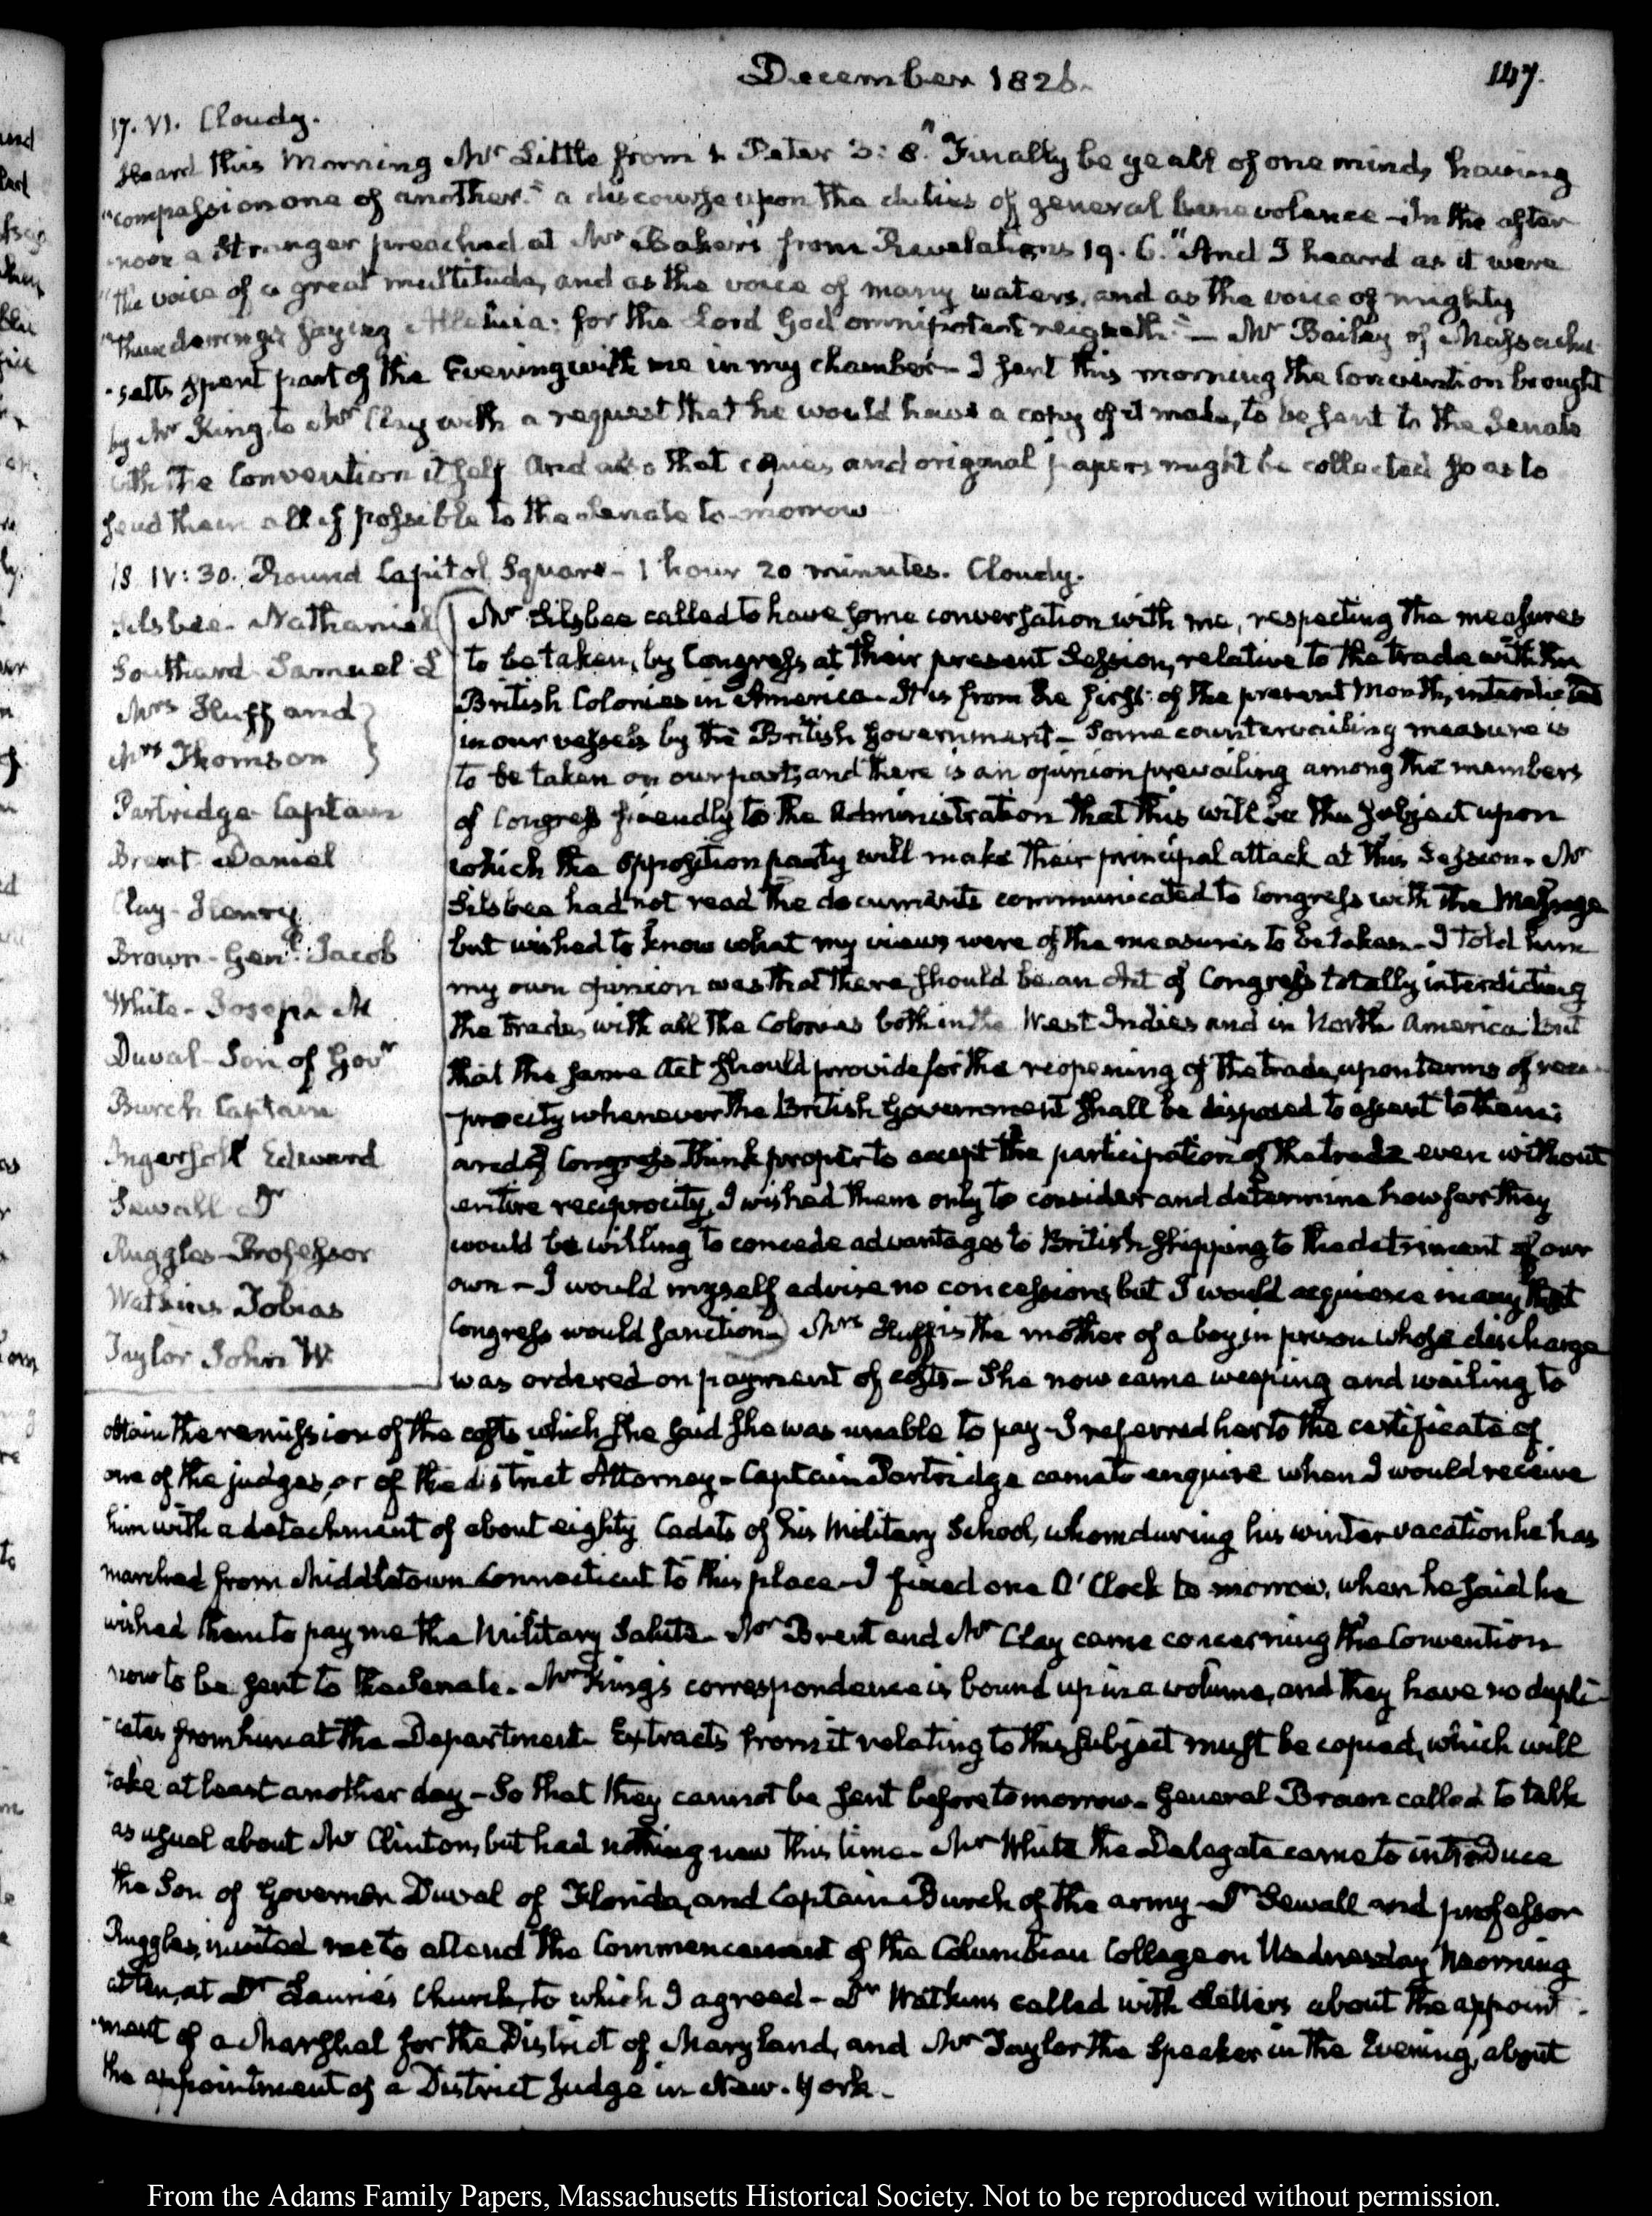 December 1826.
147.
17. VI. Cloudy.
Heard this Morning Mr Little from 1 Peter 3: 8. "Finally be ye all of one mind, having
"compassion one of another." a discourse upon the duties of general benevolence – In the after
-noon a Stranger preached at Mr Baker's from Revelations 19. 6. "And I heard as it were
"the voice of a great multitude, and as the voice of many waters, and as the voice of mighty
"thunderings saying Alleluia: for the Lord God omnipotent reigneth." — Mr Bailey of Massachu
-setts spent part of the Evening with me in my chamber – I sent this morning the Convention brought
by Mr King, to Mr Clay with a request that he would have a copy of it made, to be sent to the Senate
with the Convention itself And also that copies and original papers might be collected so as to
send them all if possible to the Senate to-morrow
18 IV: 30. Round Capitol Square – 1 hour 20 minutes. Cloudy.
Silsbee - Nathaniel
Southard Samuel L
Mrs Huff and
Mrs Thomson
Partridge Captain
Brent Daniel
Clay - Henry
Brown - Genl. Jacob
White - Joseph M
Duval - Son of Govr
Burch Captain
Ingersoll Edward
Sewall Dr
Ruggles - Professor
Watkins Tobias
Taylor John W
Mr Silsbee called to have some conversation with me, respecting the measures
to be taken, by Congress at their present Session, relative to the trade with the
British Colonies in America – It is from the first of the present Month, interdicted
in our vessels by the British Government – Some countervailing measure is
to be taken on our part, and there is an opinion prevailing among the members
of Congress friendly to the Administration that this will be the subject upon
which the opposition party will make their principal attack at this Session. Mr
Silsbee had not read the documents communicated to Congress with the Message
but wished to know what my views were of the measures to be taken – I told him
my own opinion was that there should be an Act of Congress totally interdicting
the trade, with all the Colonies both in the West Indies and in North America. but
that the same Act should provide for the reopening of the trade, upon terms of reci-
-procity whenever the British Government shall be disposed to assent to them:
and if Congress think proper to accept the participation of the trade even without
entire reciprocity, I wished them only to consider and determine how far they
would be willing to concede advantages to British shipping to the detriment of our
own – I would myself advise no concession, but I would acquiesce in any that
Congress would sanction) Mrs Huff is the mother of a boy in prison whose discharge
was ordered on payment of costs – She now came weeping and wailing to
obtain the remission of the costs which she said she was unable to pay – I referred her to the certificate of
one of the judges, or of the district Attorney – Captain Partridge came to enquire when I would receive
him with a detachment of about eighty Cadets of his Military School, whom during his winter vacation he has
marched from Middletown Connecticut to this place – I fixed one O'Clock to morrow, when he said he
wished them to pay me the Military Salute. Mr Brent and Mr Clay came concerning the Convention
now to be sent to the Senate. Mr King's correspondence is bound up in a volume, and they have no dupli-
-cates from him at the Department. Extracts from it relating to this subject must be copied, which will
take at least another day – So that they cannot be sent before tomorrow. General Brown called to talk
as usual about Mr Clinton, but had nothing new this time. Mr White the Delegate came to introduce
the Son of Governor Duval of Florida, and Captain Burch of the army – Dr Sewall and professor
Ruggles, invited me to attend the Commencement of the Columbian College on Wednesday Morning
at ten, at Dr Laurie's Church, to which I agreed – Dr Watkins called with letters about the appoint-
-ment of a Marshal for the District of Maryland, and Mr Taylor the Speaker in the Evening, about
the appointment of a District Judge in New-York.
From the Adams Family Papers, Massachusetts Historical Society. Not to be reproduced without permission.